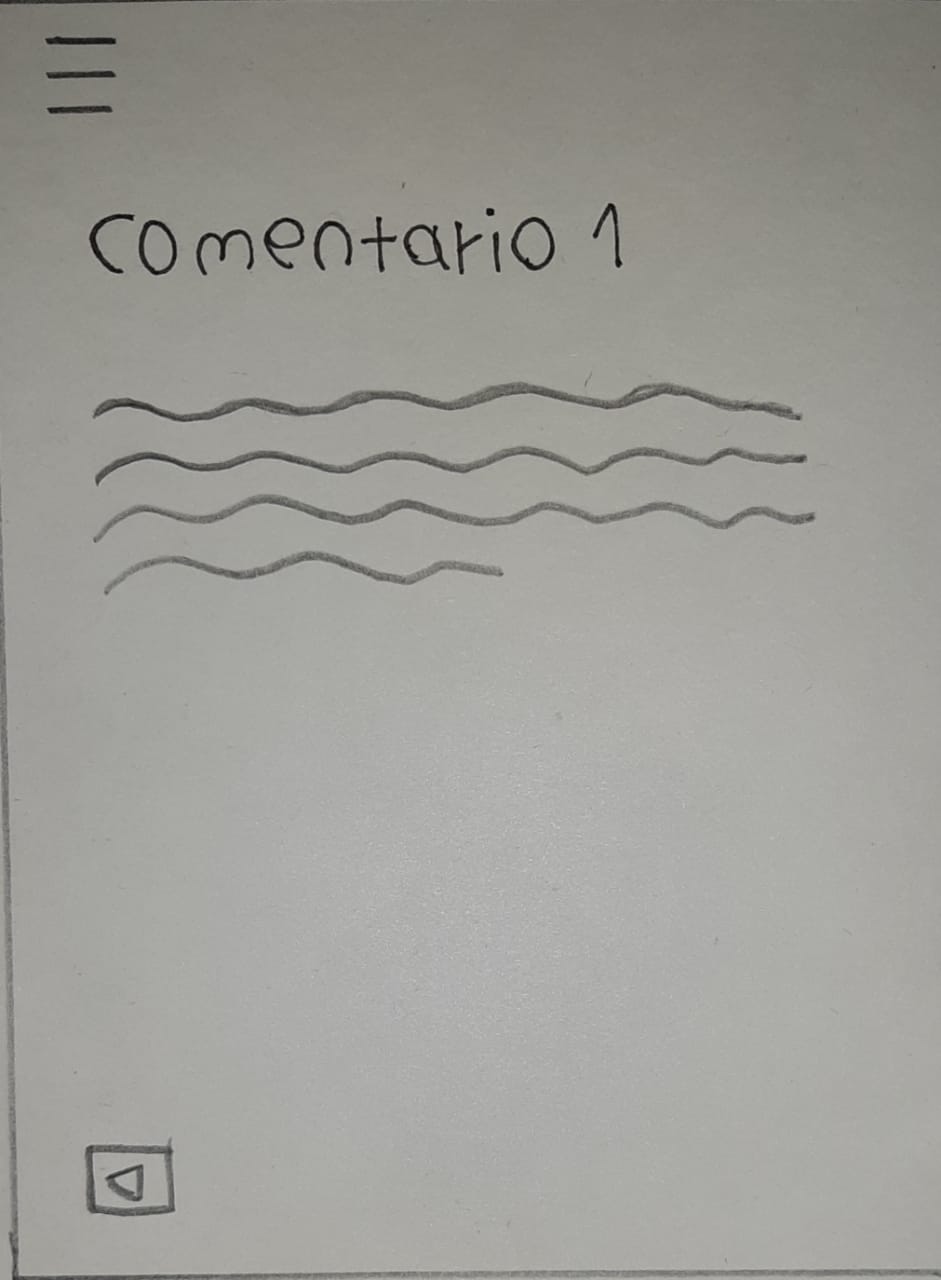 comentario 1